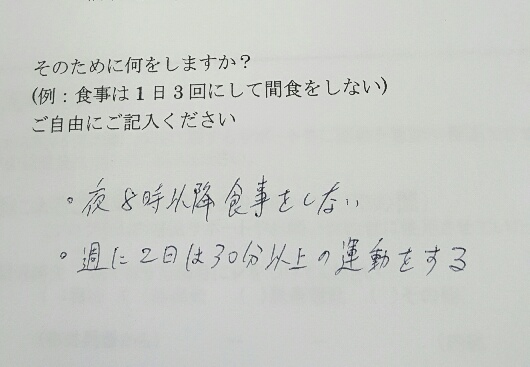 そのために何をしますか？
(例：食事は１日３回にして間食をしない)
ご自由にご記入ください
。夜８時以降食事をしない
。週に２日は３０分以上の運動をする